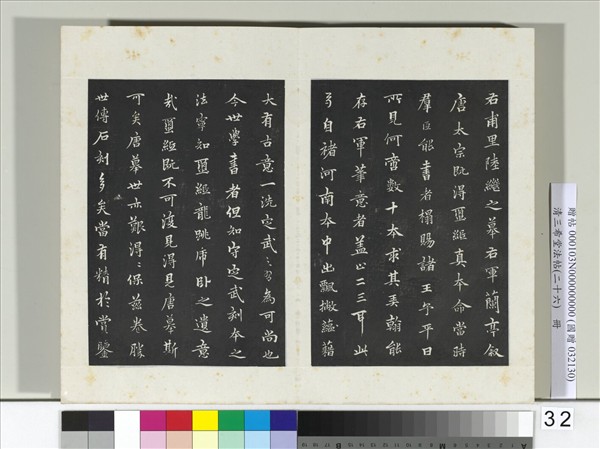 右甫里陸繼之摹右軍蘭亭叙
唐太宗既得蠒紙真本命當時
羣臣能書者搨賜諸王余平日
所見何啻數十本求其毫翰能
存右軍筆意者盖止二三耳此
乃自褚河南本中出飄撇蘊藉
大有古意一洗定武之習為可尚也
今世學書者但知守定武刻本之
法寧知蠒紙龍跳虎卧之遺意
哉蠒紙既不可復見得見唐摹斯
可矣唐摹世亦艱得得保茲卷勝
世傳石刻多矣當有精於賞鑒
贈帖 000103N000000000 (國贈 032130)
清三希堂法帖(二十六) 冊
32